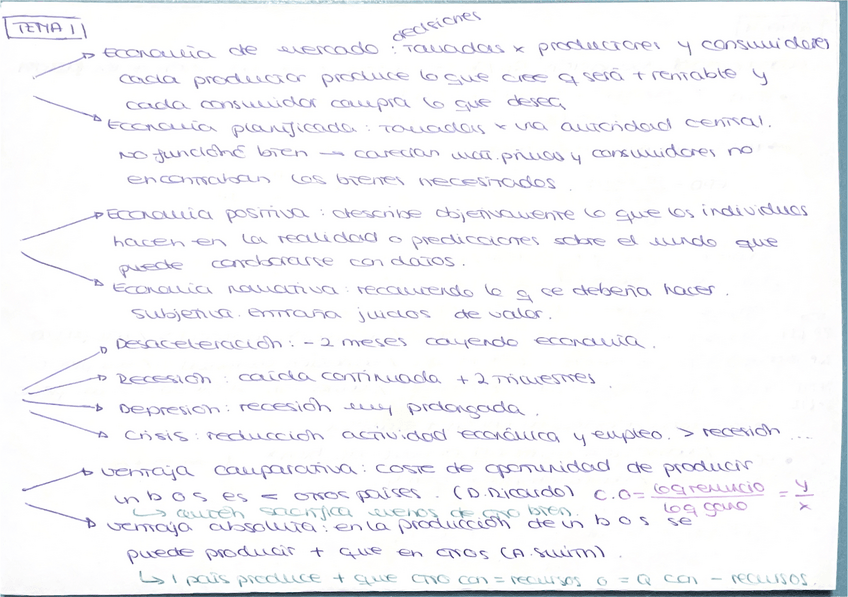 TEMA 1
decisiones
Economía de mercado : Tomadas x productores y consumidores
cada productor produce lo que cree q será + rentable y
cada consumidor compra lo que desea
Economía planificada : Tomadas x una autoridad central.
No funcionó bien → carecían mat. primas y consumidores no
encontraban los bienes necesitados.
Economía positiva : describe objetivamente lo que los individuos
hacen en la realidad o predicciones sobre el mundo que
puede corroborarse con datos.
Economía normativa : recomiendo lo q se debería hacer.
Subjetiva. entraña juicios de valor.
Desaceleración : - 2 meses cayendo economía.
Recesión : caída continuada + 2 trimestres.
Depresión : recesión muy prolongada.
Crisis : reducción actividad económica y empleo. > recesión ...
Ventaja comparativa : coste de oportunidad de producir
un b o s es < otros países. (D. Ricardo) C.O = lo q renuncio / lo q gano = y / x
↳ quién sacrifica menos de otro bien.
Ventaja absoluta : en la producción de un b o s se
puede producir + que en otros (A. Smith).
↳ 1 país produce + que otro con = recursos o = Q con - recursos.